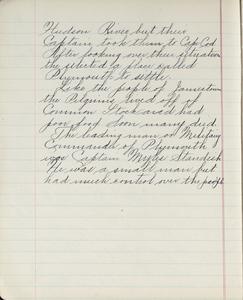 Hudson River but their
Captain took them to Cape Cod
After looking over their situation
the selected a place called
Plymouth to settle.
Like the people of Jamestown
the Pilgrims lived off of
Common Stock and had
poor food soon many died.
The leading man or Military
Commander of Plymouth
was Captain Myles Standish
He was a small man but
had much control over the people